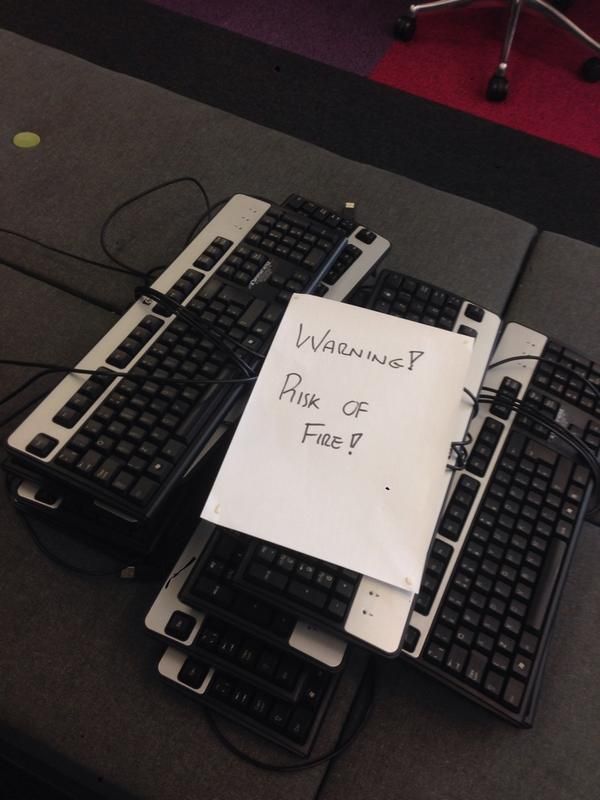 WARNING!
RISK OF
FIRE!